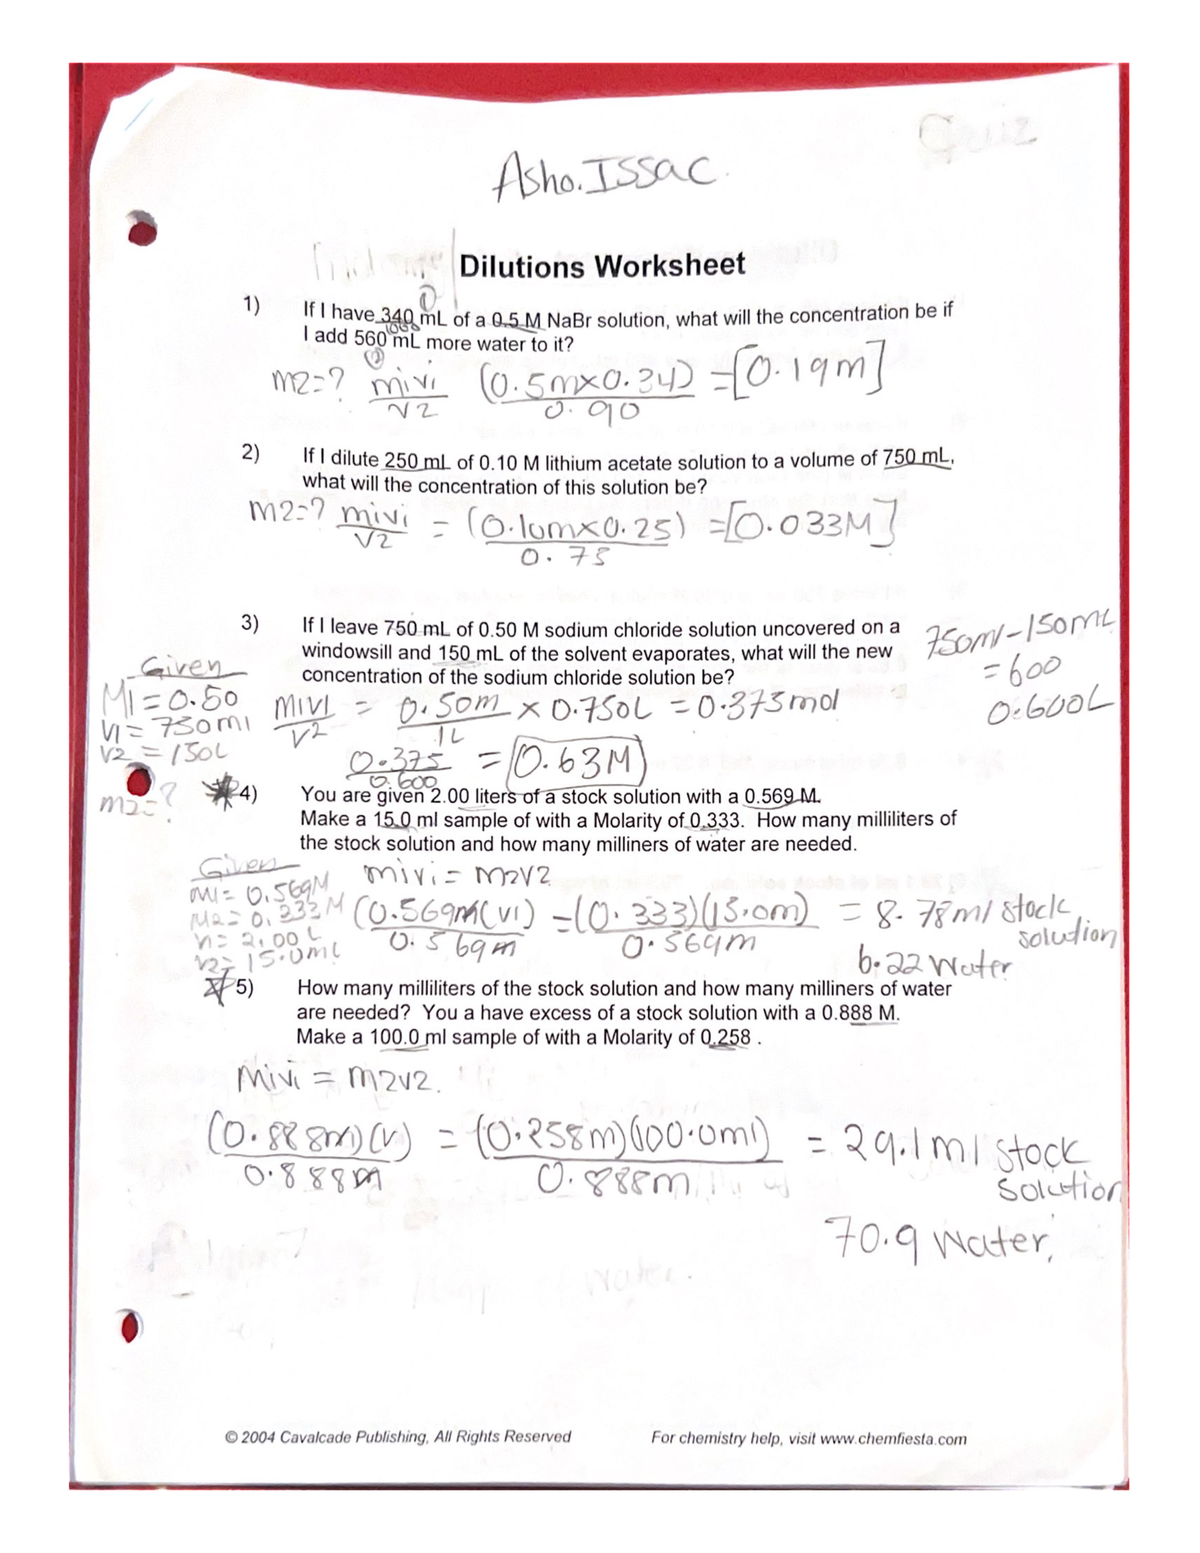 Quiz
Asho.Issac.
Dilutions Worksheet
1) If I have 340 mL of a 0.5 M NaBr solution, what will the concentration be if
1000
I add 560 mL more water to it?
m2=? m1v1 (0.5mx0.34) =[0.19m]
v2 0.90
2) If I dilute 250 mL of 0.10 M lithium acetate solution to a volume of 750 mL,
what will the concentration of this solution be?
m2=? m1v1 = (0.10mx0.25) =[0.033M]
v2 0.75
3) If I leave 750 mL of 0.50 M sodium chloride solution uncovered on a
windowsill and 150 mL of the solvent evaporates, what will the new
concentration of the sodium chloride solution be?
750ml-150mL
=600
0.600L
Given
M1=0.50
V1=750ml
V2=150L
m2=?
M1V1 = 0.50m x 0.750L = 0.375mol
V2 1L
0.375 = 0.63M
0.600
4) You are given 2.00 liters of a stock solution with a 0.569 M.
Make a 15.0 ml sample of with a Molarity of 0.333. How many milliliters of
the stock solution and how many milliners of water are needed.
Given
m1= 0.569M
M2= 0.333M
v1= 2.00L
v2= 15.0mL
m1v1= m2v2
(0.569M(v1) =(0.333)(15.0m) = 8.78ml stock
0.569m 0.569m solution
6.22 water
5) How many milliliters of the stock solution and how many milliners of water
are needed? You a have excess of a stock solution with a 0.888 M.
Make a 100.0 ml sample of with a Molarity of 0.258 .
M1v1 = m2v2.
(0.888m)(v1) = (0.258m)(100.0ml) = 29.1ml stock
0.888m 0.888m solution
70.9 water.
© 2004 Cavalcade Publishing, All Rights Reserved For chemistry help, visit www.chemfiesta.com